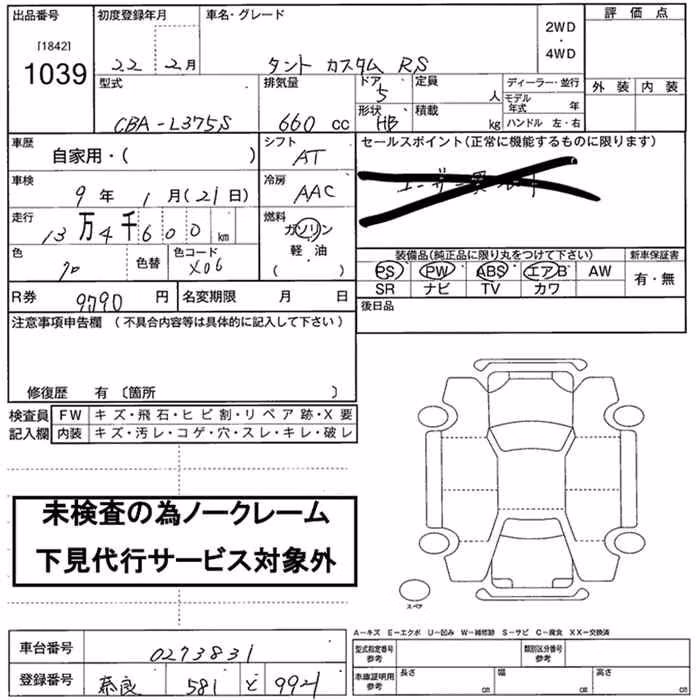 出品番号 初度登録年月 車名・グレード 2WD ・ 4WD 評価点
[1842] 1039 22 2月 タント カスタム RS
型式 排気量 ドア 定員 ディーラー・並行 外装 内装
5 人 モデル年式 年
CBA-L375S 660 cc 形状 HB 積載 kg ハンドル 左・右
車歴 シフト セールスポイント(正常に機能するものに限ります)
自家用・( ) AT
車検 9年 1月(21日) 冷房 AAC
走行 13万4千600km 燃料 ガソリン
軽・油
( )
色 クロ 色替 色コード X06
装備品(純正品に限り丸をつけて下さい) 新車保証書
PS PW ABS エアB AW 有・無
SR ナビ TV カワ
R券 9790 円 名変期限 月 日 後日品
注意事項申告欄 (不具合内容等は具体的に記入して下さい)
修復歴 有 〔箇所 〕
検査員 FW キズ・飛石・ヒビ割・リペア跡・X要
記入欄 内装 キズ・汚レ・コゲ・穴・スレ・キレ・破レ
未検査の為ノークレーム
下見代行サービス対象外
スペア
A−キズ E−エクボ U−凹み W−補修跡 S−サビ C−腐食 XX−交換済
車台番号 0273831 型式指定番号 参考 類別区分番号 参考
登録番号 奈良 581 と 9921 車庫証明用 参考 長さ cm 幅 cm 高さ cm